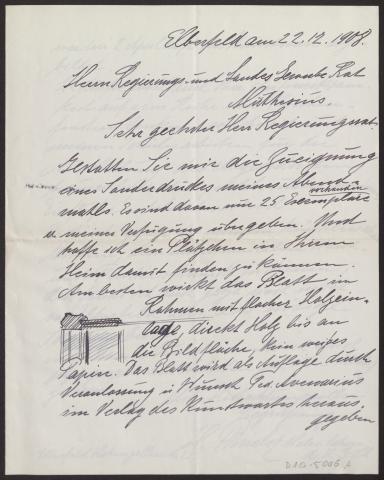 Elberfeld am 22.12.1908.
Herrn Regierungs- und Landes Gewerbe Rat
Muthesius.
Sehr geehrter Herr Regierungsrat.
Gestatten Sie mir die Zueignung
eines Sonderdruckes meines Abend-
vorhanden
mahls. Es sind davon nur 25 Exemplare
u. meiner Verfügung übergeben. Und
hoffe ich ein Plätzchen in Ihrem
Heim damit finden zu können.
Am besten wirkt das Blatt im
Rahmen mit flacher Holzein-
lage, direkt Holz bis an
die Bildfläche, kein weißes
Papier. Das Blatt wird als Auflage durch
Veranlassung u Wunsch Fed. Avenarius
im Verlag des Kunstwartes heraus
gegeben
D 102-5006 A